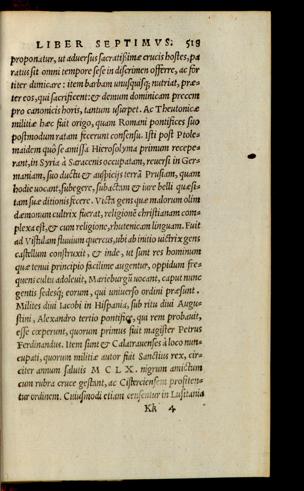 LIBER SEPTIMVS. 519
proponatur, ut aduersus sacratissimæ crucis hostes, pa
ratus sit omni tempore sese in discrimen offerre, ac for
titer dimicare: item barbam unusquisq; nutriat, præ=
ter eos, qui sacrificent: & demum dominicam precem
pro canonicis horis, tantum usurpet. Ac Theutonicæ
militiæ hæc fuit origo, quam Romani pontifices suo
postmodum ratam fecerunt consensu. Isti post Ptole=
maidem quò se amissa Hierosolyma primum recepe=
rant, in Syria à Saracenis occupatam, reuersi in Ger=
maniam, suo ductu & auspicijs terrã Prusiam, quam
hodie uocant, subegere, subactam & iure belli quæsi=
tam suæ ditionis fecere. Victa gens quæ malorum olim
dæmonum cultrix fuerat, religionẽ christianam com=
plexa est, & cum religione, rhutenicam linguam. Fuit
ad Vistulam fluuium quercus, ubi ab initio uictrix gens
castellum construxit, & inde, ut sunt res hominum
quæ tenui principio facilime augentur, oppidum fre=
quens cultu adoleuit, Marieburgũ uocant, caput nunc
gentis sedesq; eorum, qui uniuerso ordini præsunt.
Milites diui Iacobi in Hispania, sub ritu diui Augu=
stini, Alexandro tertio pontifice, qui rem probauit,
esse cœperunt, quorum primus fuit magister Petrus
Ferdinandus. Item sunt & Calatrauenses à loco nun=
cupati, quorum militiæ autor fuit Sanctius rex, cir=
citer annum salutis M C L X. nigrum amictum
cum rubra cruce gestant, ac Cisterciensem profiten=
tur ordinem. Cuiusmodi etiam censentur in Lusitania
Kk 4